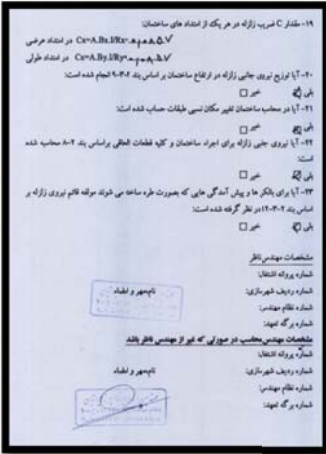 ۱۹- مقدار C ضریب زلزله در هر یک از امتداد های ساختمان:
Cx=A.Bx.I/Rx=۰.۰۸۵۷ در امتداد عرضی
Cx=A.By.I/Ry=۰.۰۸۵۷ در امتداد طولی
۲۰- آیا توزیع نیروی جانبی زلزله در ارتفاع ساختمان بر اساس بند ۲-۳-۹ انجام شده است:
بلی خیر
۲۱- آیا در محاسبه ساختمان تغییر مکان نسبی طبقات حساب شده است:
بلی خیر
۲۲- آیا نیروی جانبی زلزله برای اجزاء ساختمان و کلیه قطعات الحاقی براساس بند ۲-۸ محاسبه شده
است:
بلی خیر
۲۳- آیا برای بالکن ها و پیش آمدگی هایی که بصورت طره ساخته می شوند مولفه قائم نیروی زلزله بر
اساس بند ۲-۳-۱۲ در نظر گرفته شده است:
بلی خیر
مشخصات مهندس ناظر
شماره پروانه اشتغال:
شماره ردیف شهرسازی: نام مهر و امضاء
شماره نظام مهندسی:
شماره برگه تعهد:
مشخصات مهندس محاسب در صورتی که غیر از مهندس ناظر باشد
شماره پروانه اشتغال:
شماره ردیف شهرسازی: نام مهر و امضاء
شماره نظام مهندسی:
شماره برگه تعهد: